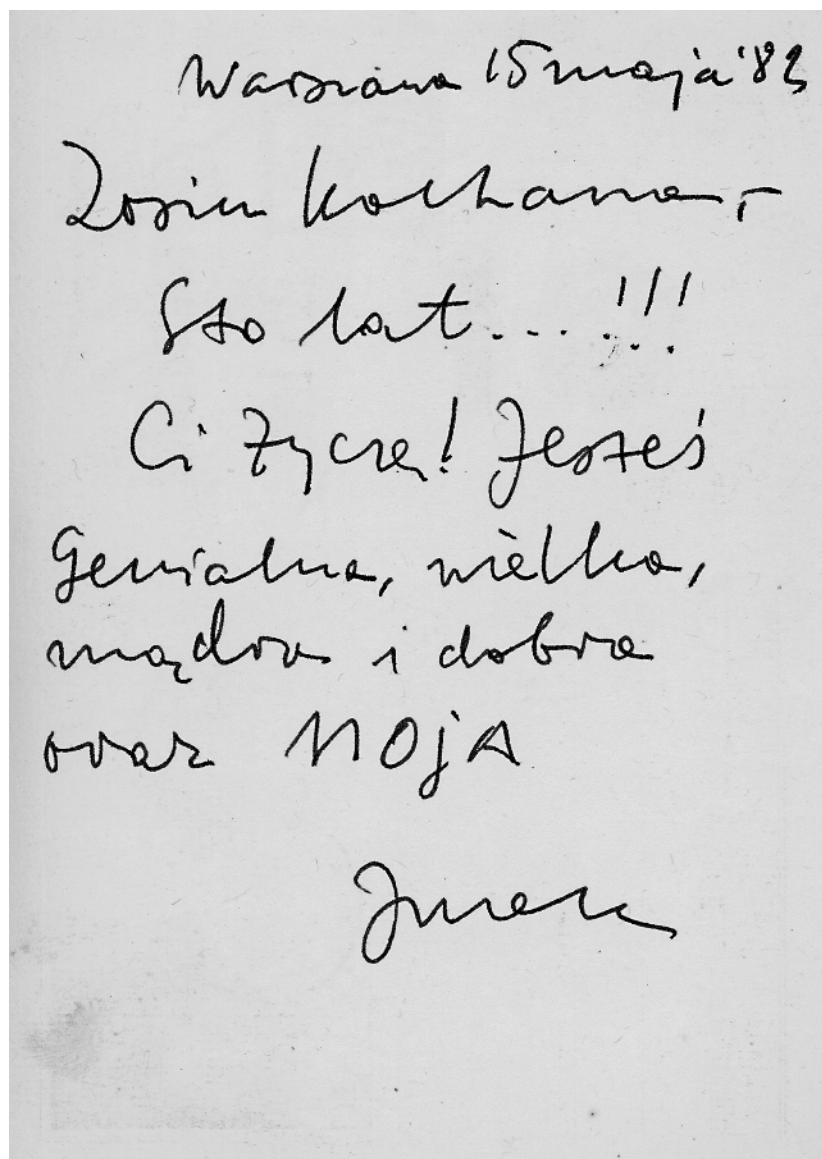 Warszawa 15 maja '83
Zosiu kochana,-
Sto lat....!!!
Ci życzę! Jesteś
Genialna, wielka,
mądra i dobra
oraz MOjA
Jurek